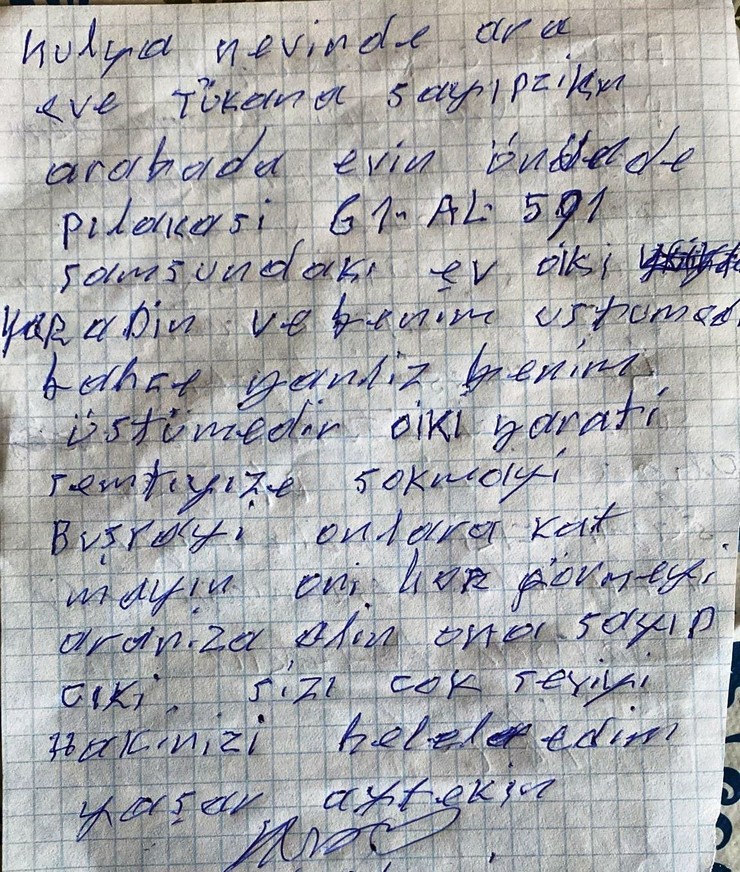 hulya nevinde ara
eve Tükana sayıpzikın
arabada evin önde
pılakasi 61-AL-591
samsundakı ev oiki
yapadin ve benim ustumed
bahçe yanliz benim
üstümedir oiki yarati
semtiyize sokmayi
Buşrayi onlara kat
mayin oni hor görmeyi
araniza alin ona sayıp
cıki sizi cok seviyi
Hakinizi helal edim
yaşar aytekin